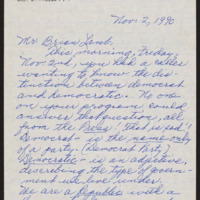 Nov. 2, 1990
Mr Brian Lamb.
This morning, Friday,
Nov 2nd, you had a caller
wanting to know the dis-
tinction between democrat
and democratic. No one
on your program could
answer that question, all
from the Press (That is sad!)
Democrat is the name only
of a party. (Democrat Party)
Democratic - is an adjective,
describing the type of govern-
ment we live under.
We are a Republic with a